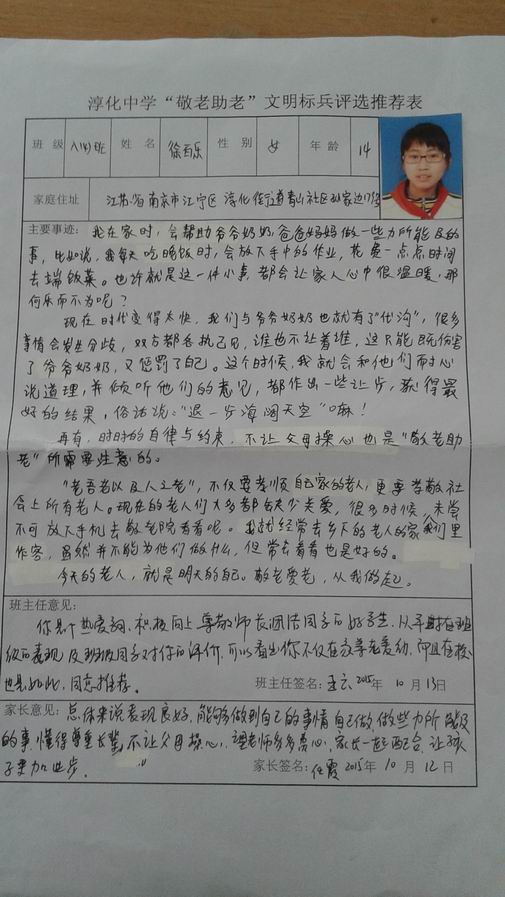 淳化中学“敬老助老”文明标兵评选推荐表
班级 八(4)班 姓名 徐百乐 性别 女 年龄 14
家庭住址 江苏省南京市江宁区淳化街道青山社区孙家边17号
主要事迹: 我在家时,会帮助爷爷奶奶,爸爸妈妈做一些力所能及的
事,比如说,我每天吃晚饭时,会放下手中的作业,花费一点点时间
去端饭菜。也许就是这一件小事,都会让家人心中很温暖,那
何乐而不为呢?
现在时代变得太快,我们与爷爷奶奶也就有了“代沟”,很多
事情会发生分歧,双方都各执己见,谁也不让着谁,这只能既伤害
了爷爷奶奶,又惩罚了自己。这个时候,我就会和他们耐心
说道理,并倾听他们的意见,都作出一些让步,获得最
好的结果,俗话说:“退一步海阔天空”嘛!
再有,时时的自律与约束,不让父母操心也是“敬老助
老”所需要注意的。
“老吾老以及人之老”,不仅要孝顺自己家的老人,更要孝敬社
会上所有老人。现在的老人们大多都缺少关爱,很多时候,未尝
不可放下手机去敬老院看看呢。我就经常去乡下的老人的家们里
作客,虽然并不能为他们做什么,但常去看看也是好的。
今天的老人,就是明天的自己。敬老爱老,从我做起。
班主任意见:
你是个热爱学习、积极向上、尊敬师长、团结同学的好学生,从平时在班
级的表现及班级同学对你的评价,可以看出你不仅在家尊老爱幼,而且在校
也是如此,同意推荐。 班主任签名: 2015年 10月 13日
家长意见: 总体来说表现良好,能够做到自己的事情自己做,做些力所能及
的事,懂得尊重长辈,不让父母操心,请老师多多费心,家长一起配合,让孩
子更加进步。
家长签名: 任霞 2015年 10月 12日